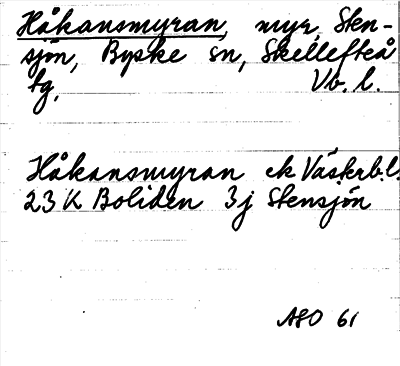 Håkansmyran, myr, Sten-
sjön, Byske sn, Skellefteå
tg, Vb. l.
Håkansmyran ek Västerb.l.
23 K Boliden 3j Stensjön
ASO 61